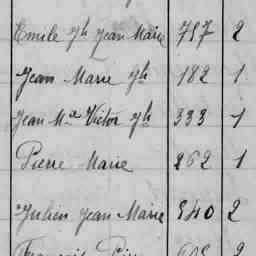 Emile Jh Jean Marie 757 2
Jean Marie Jh 182 1
Jean Ma Victor Jh 333 1
Pierre Marie 262 1
Julien Jean Marie 540 2
François